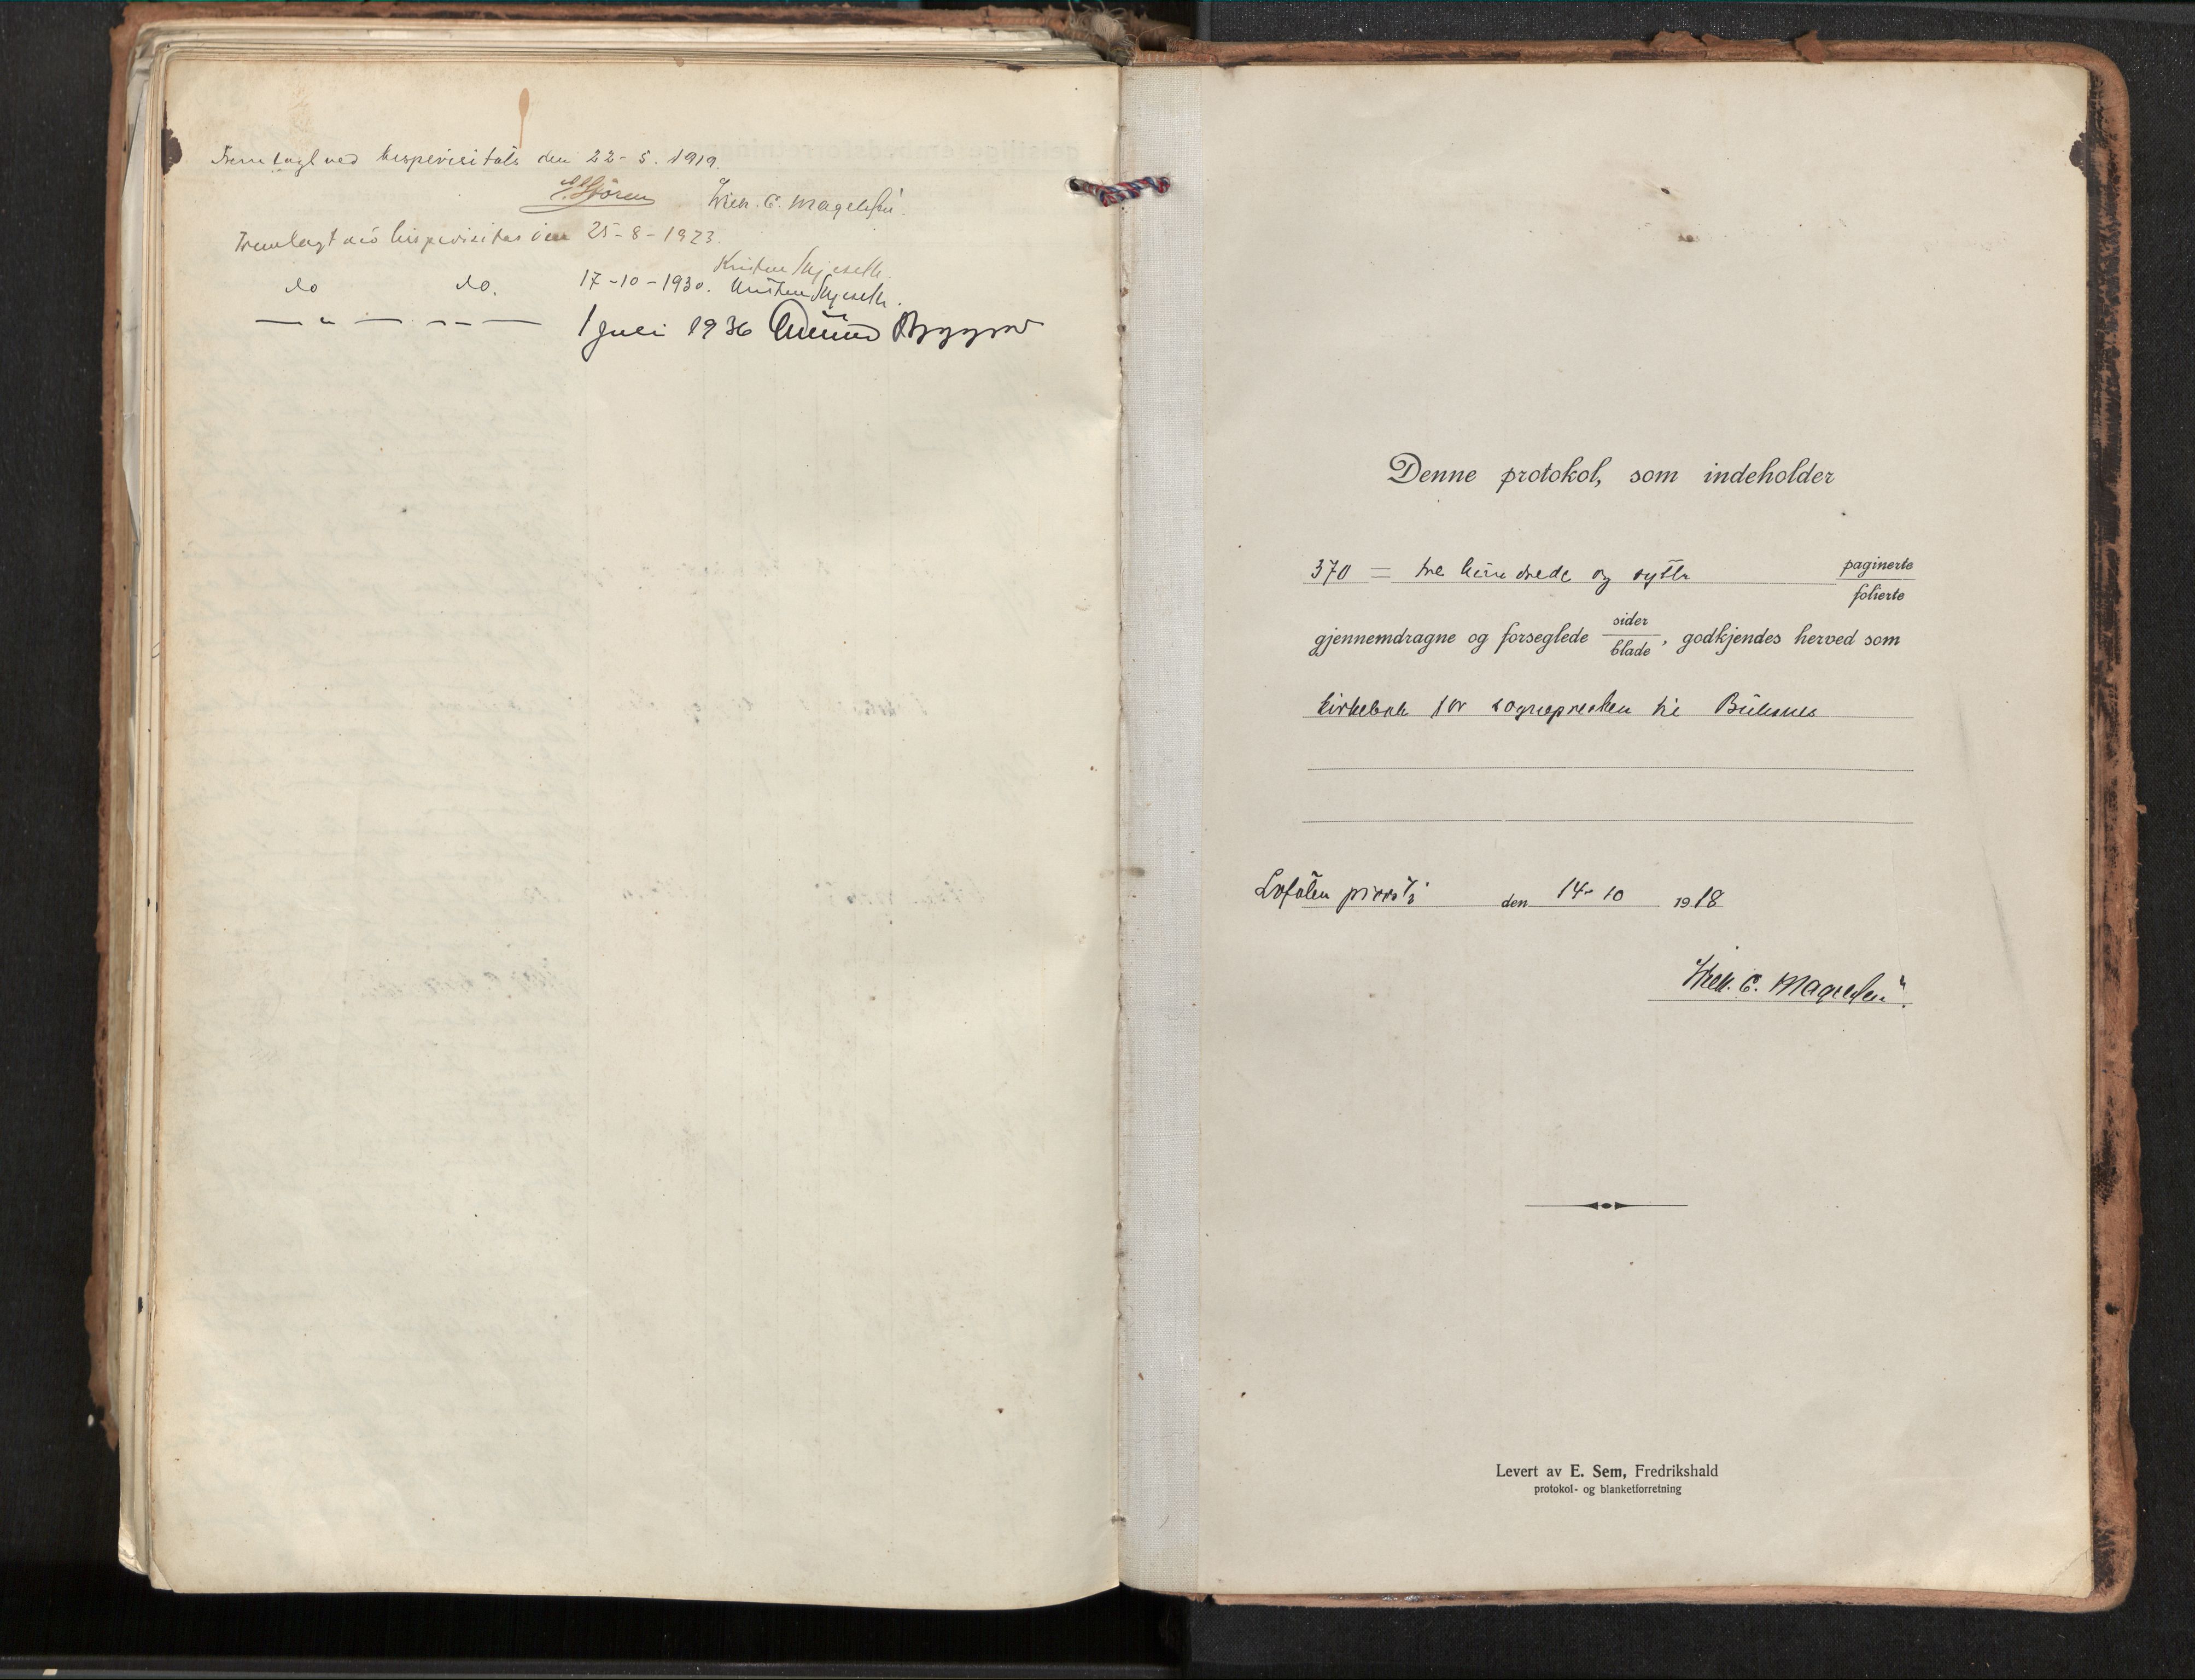 Fremlagt ved bispevisitas den 22-5. 1919.
Wilh. C. Magelssen.
Fremlagt ved bispevisitas den 25-8-1923.
Kristian Hjeseth.
do do. 17-10-1930. Kristian Hjeseth.
— " — — " — 1 juli 1936
Denne protokol, som indeholder
370 = tre hundrede og sytti paginerte
folierte
gjennemdragne og forseglede sider
blade, godkjendes herved som
kirkebok for sognepresten til Buksnes
Lofoten prosti den 14-10 1918
Wilh. C. Magelssen.
Levert av E. Sem, Fredrikshald
protokol- og blanketforretning